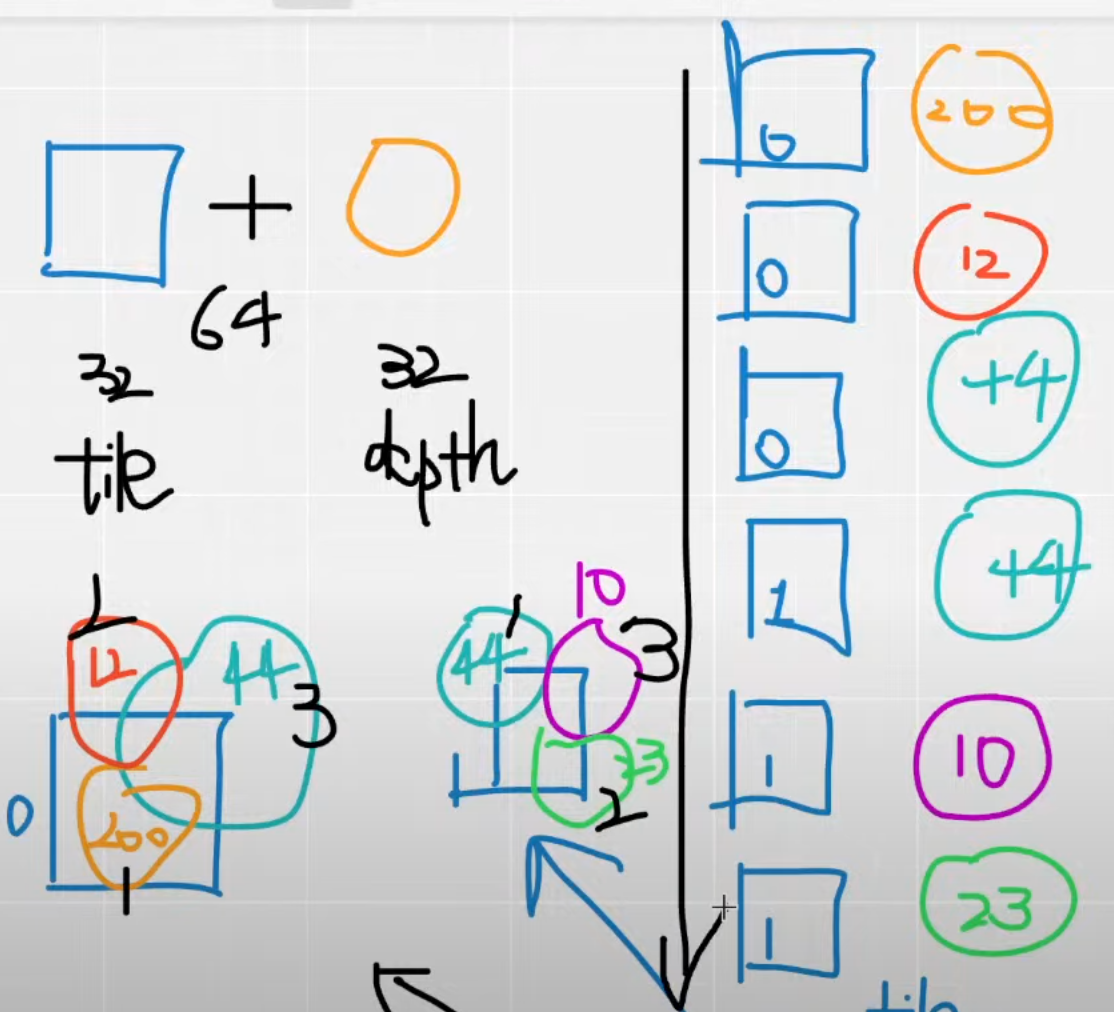 +
64
32
tile
32
depth
1
12
44
3
0
200
1
44
1
10
3
23
2
0
200
0
12
0
+4
1
44
1
10
1
23
tile